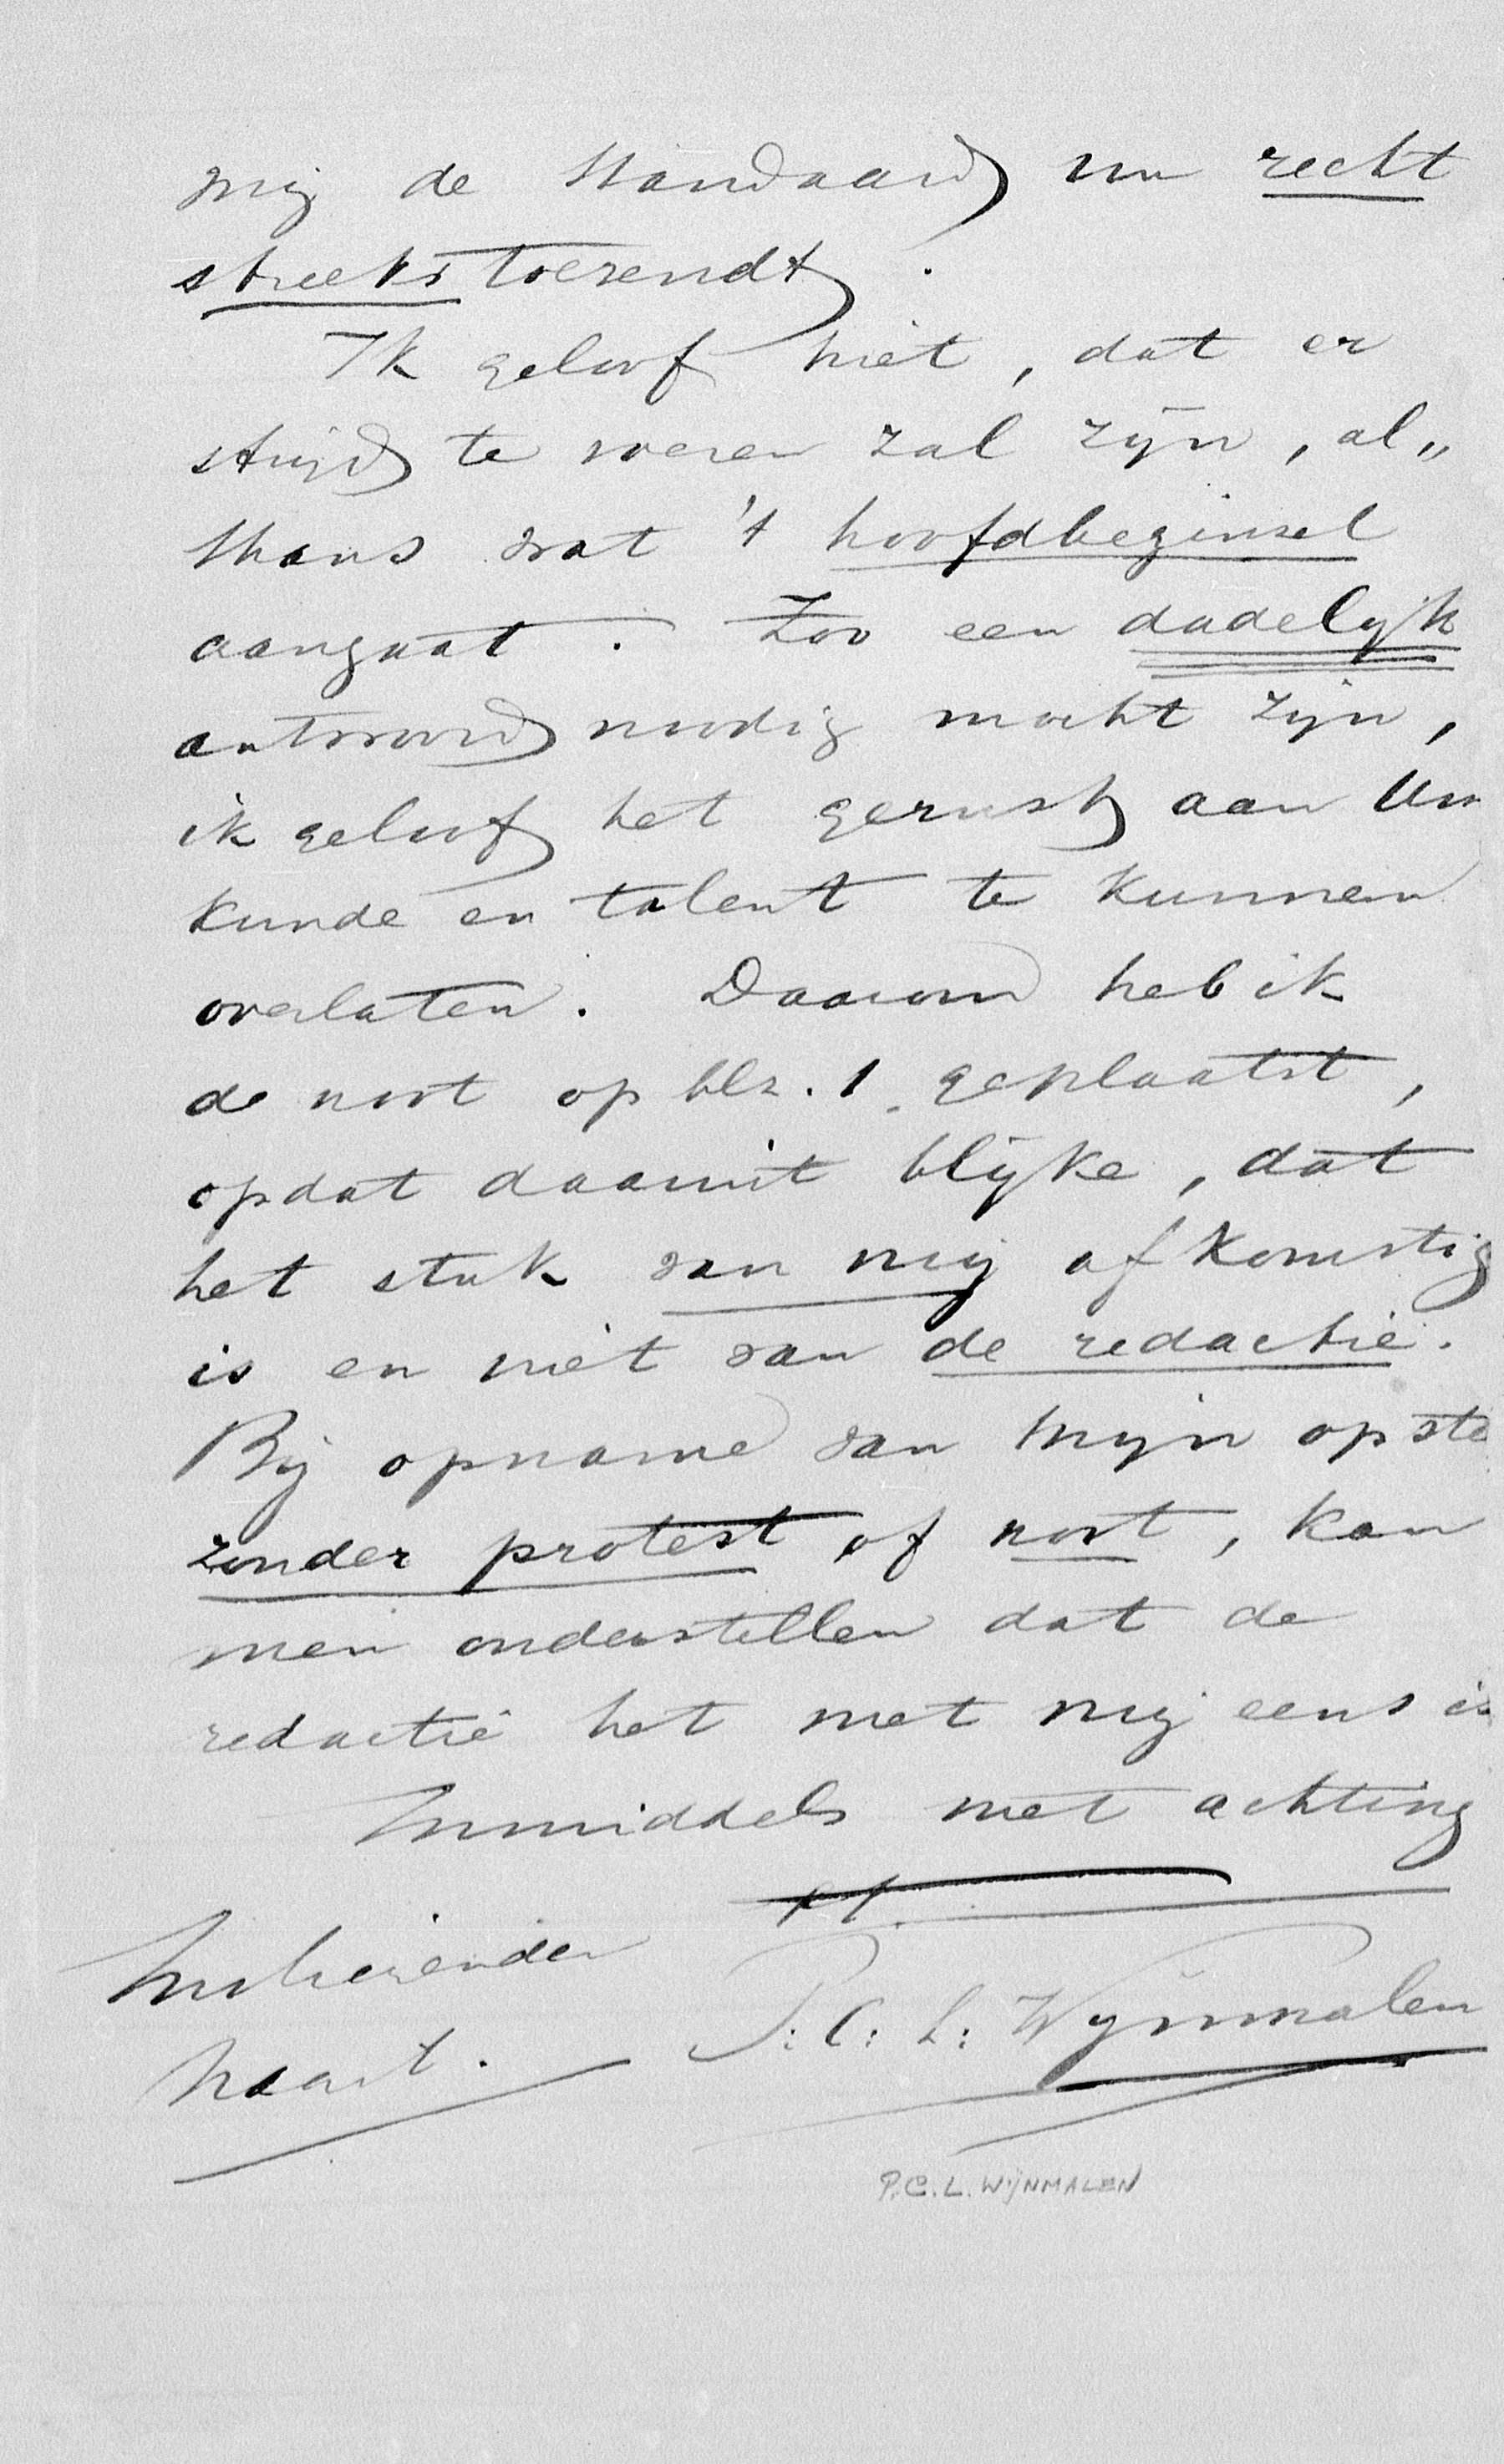 mij de Standaard nu recht
streeks toezendt.
Ik geloof niet, dat er
strijd te voeren zal zijn, al„
thans wat 't hoofdbeginsel
aangaat. Zoo een dadelijk
antwoord noodig mocht zijn,
ik geloof het gerust aan Uw
kunde en talent te kunnen
overlaten. Daarom heb ik
de noot op blz. 1 geplaatst,
opdat daaruit blijke, dat
het stuk van mij afkomstig
is en niet van de redactie.
Bij opname van mijn opste
zonder protest of noot, kan
men onderstellen dat de
redactie het met mij eens is
Inmiddels met achting
P: C: L: Wijnmalen
haast.
P.C.L. WIJNMALEN